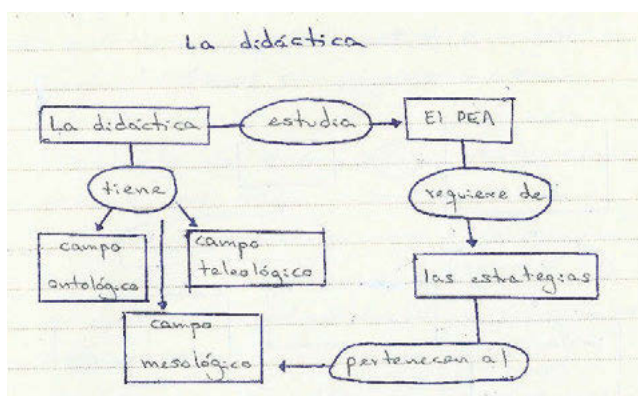 La didáctica
La didáctica
estudia
El PEA
tiene
requiere de
campo
ontológico
campo
teleológico
las estrategias
campo
mesológico
pertenecen al